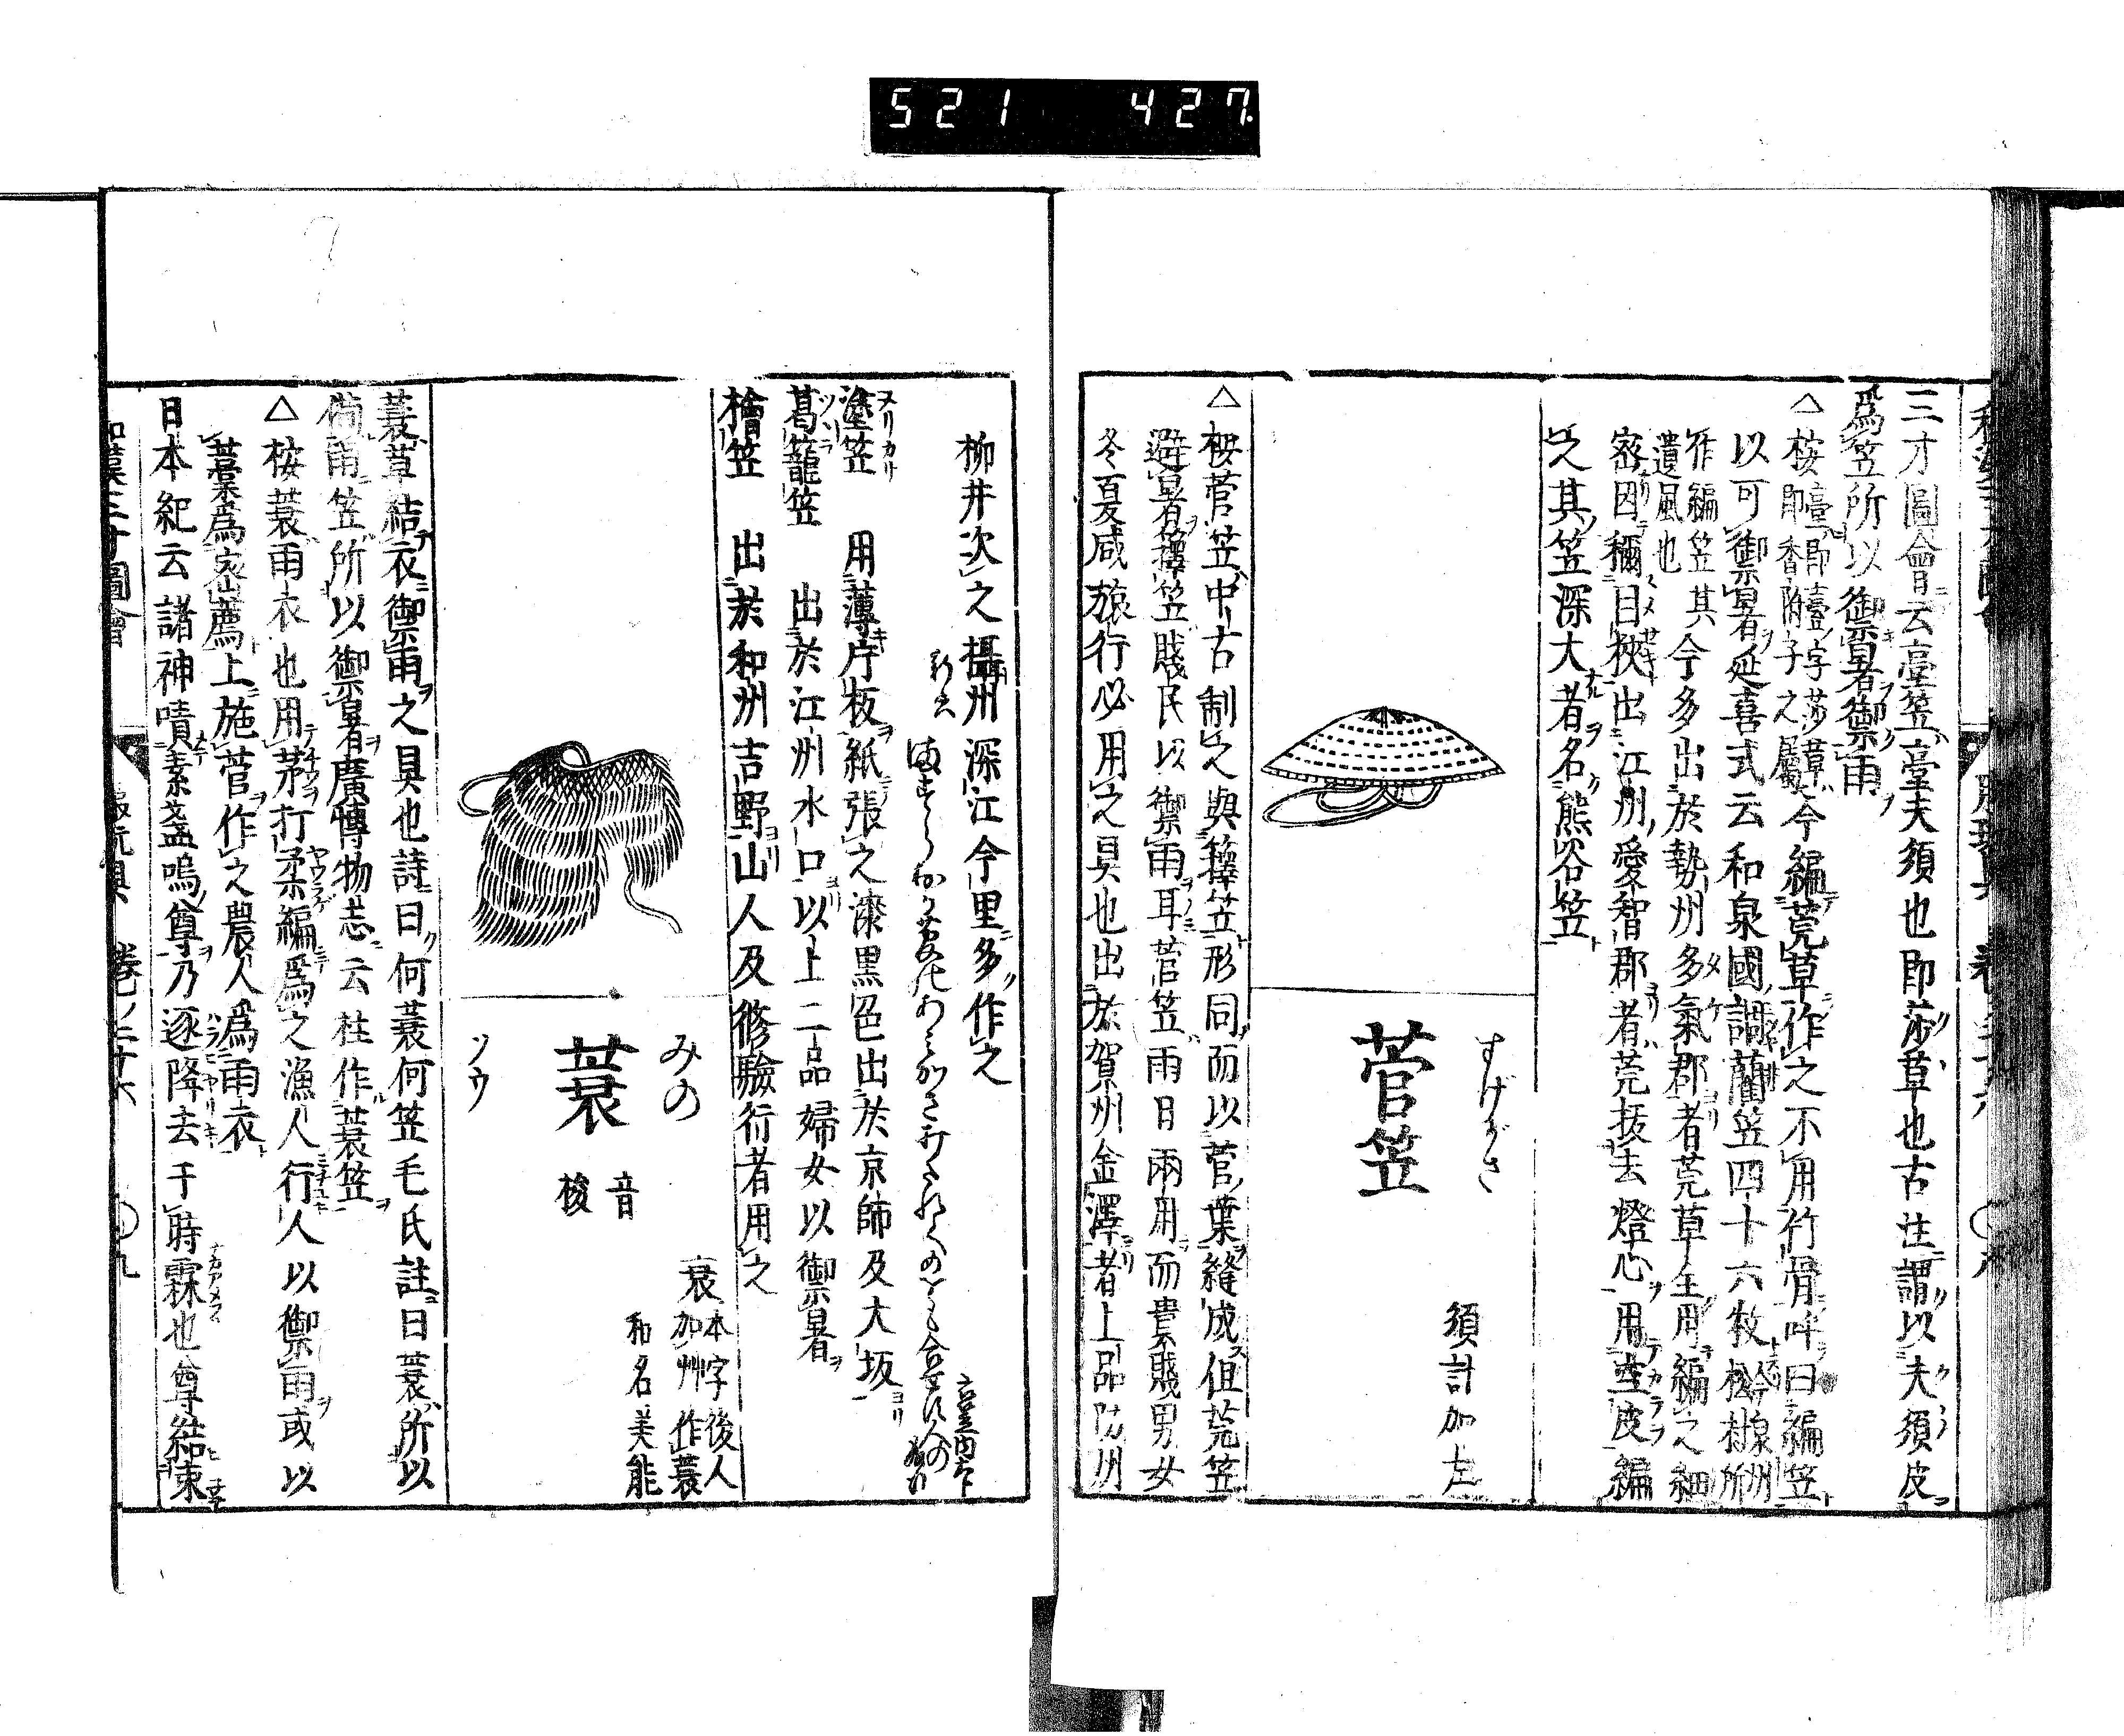 521 427.
三才圖會云臺笠臺夫須也即莎草也古注謂以夫須皮
爲笠所以御暑御雨
△桉臺即薹字莎草即香附子之屬今編莞草作之不用竹骨呼曰編笠
以可御暑延喜式云和泉國調藺笠四十六枚今泉州松村所
作編笠其遺風也今多出於勢州多氣郡者莞草全用編之細
密因稱目狹出江州愛智郡者莞抜去燈心用空皮編
之其笠深大者名熊谷笠
すげがさ
菅笠
須計加左
△桉菅笠中古制之與籜笠形同而以菅葉縫成但莞笠
避暑籜笠賤民以禦雨耳菅笠雨日兩用而貴賤男女
冬夏咸旅行必用之具也出於賀州金澤者上品防州
柳井次之攝州深江今里多作之
塗笠 用薄片板紙張之漆黒色出於京師及大坂
葛籠笠 出於江州水口以上二品婦女以禦暑
檜笠 出於和州吉野山人及修驗行者用之
みの
蓑
音梭
ソウ
衰本字後人加艸作蓑
和名美能
蓑草結衣禦雨之具也詩曰何蓑何笠毛氏註曰蓑所以
備雨笠所以御暑廣博物志云杜作蓑笠
△桉蓑雨衣也用茅打柔編爲之漁人行人以禦雨或以
藁爲密薦上施菅作之農人爲雨衣
日本紀云諸神嘖素盞嗚尊乃逐降去于時霖也尊結束
和漢三才圖會
卷ノ二十六
○九